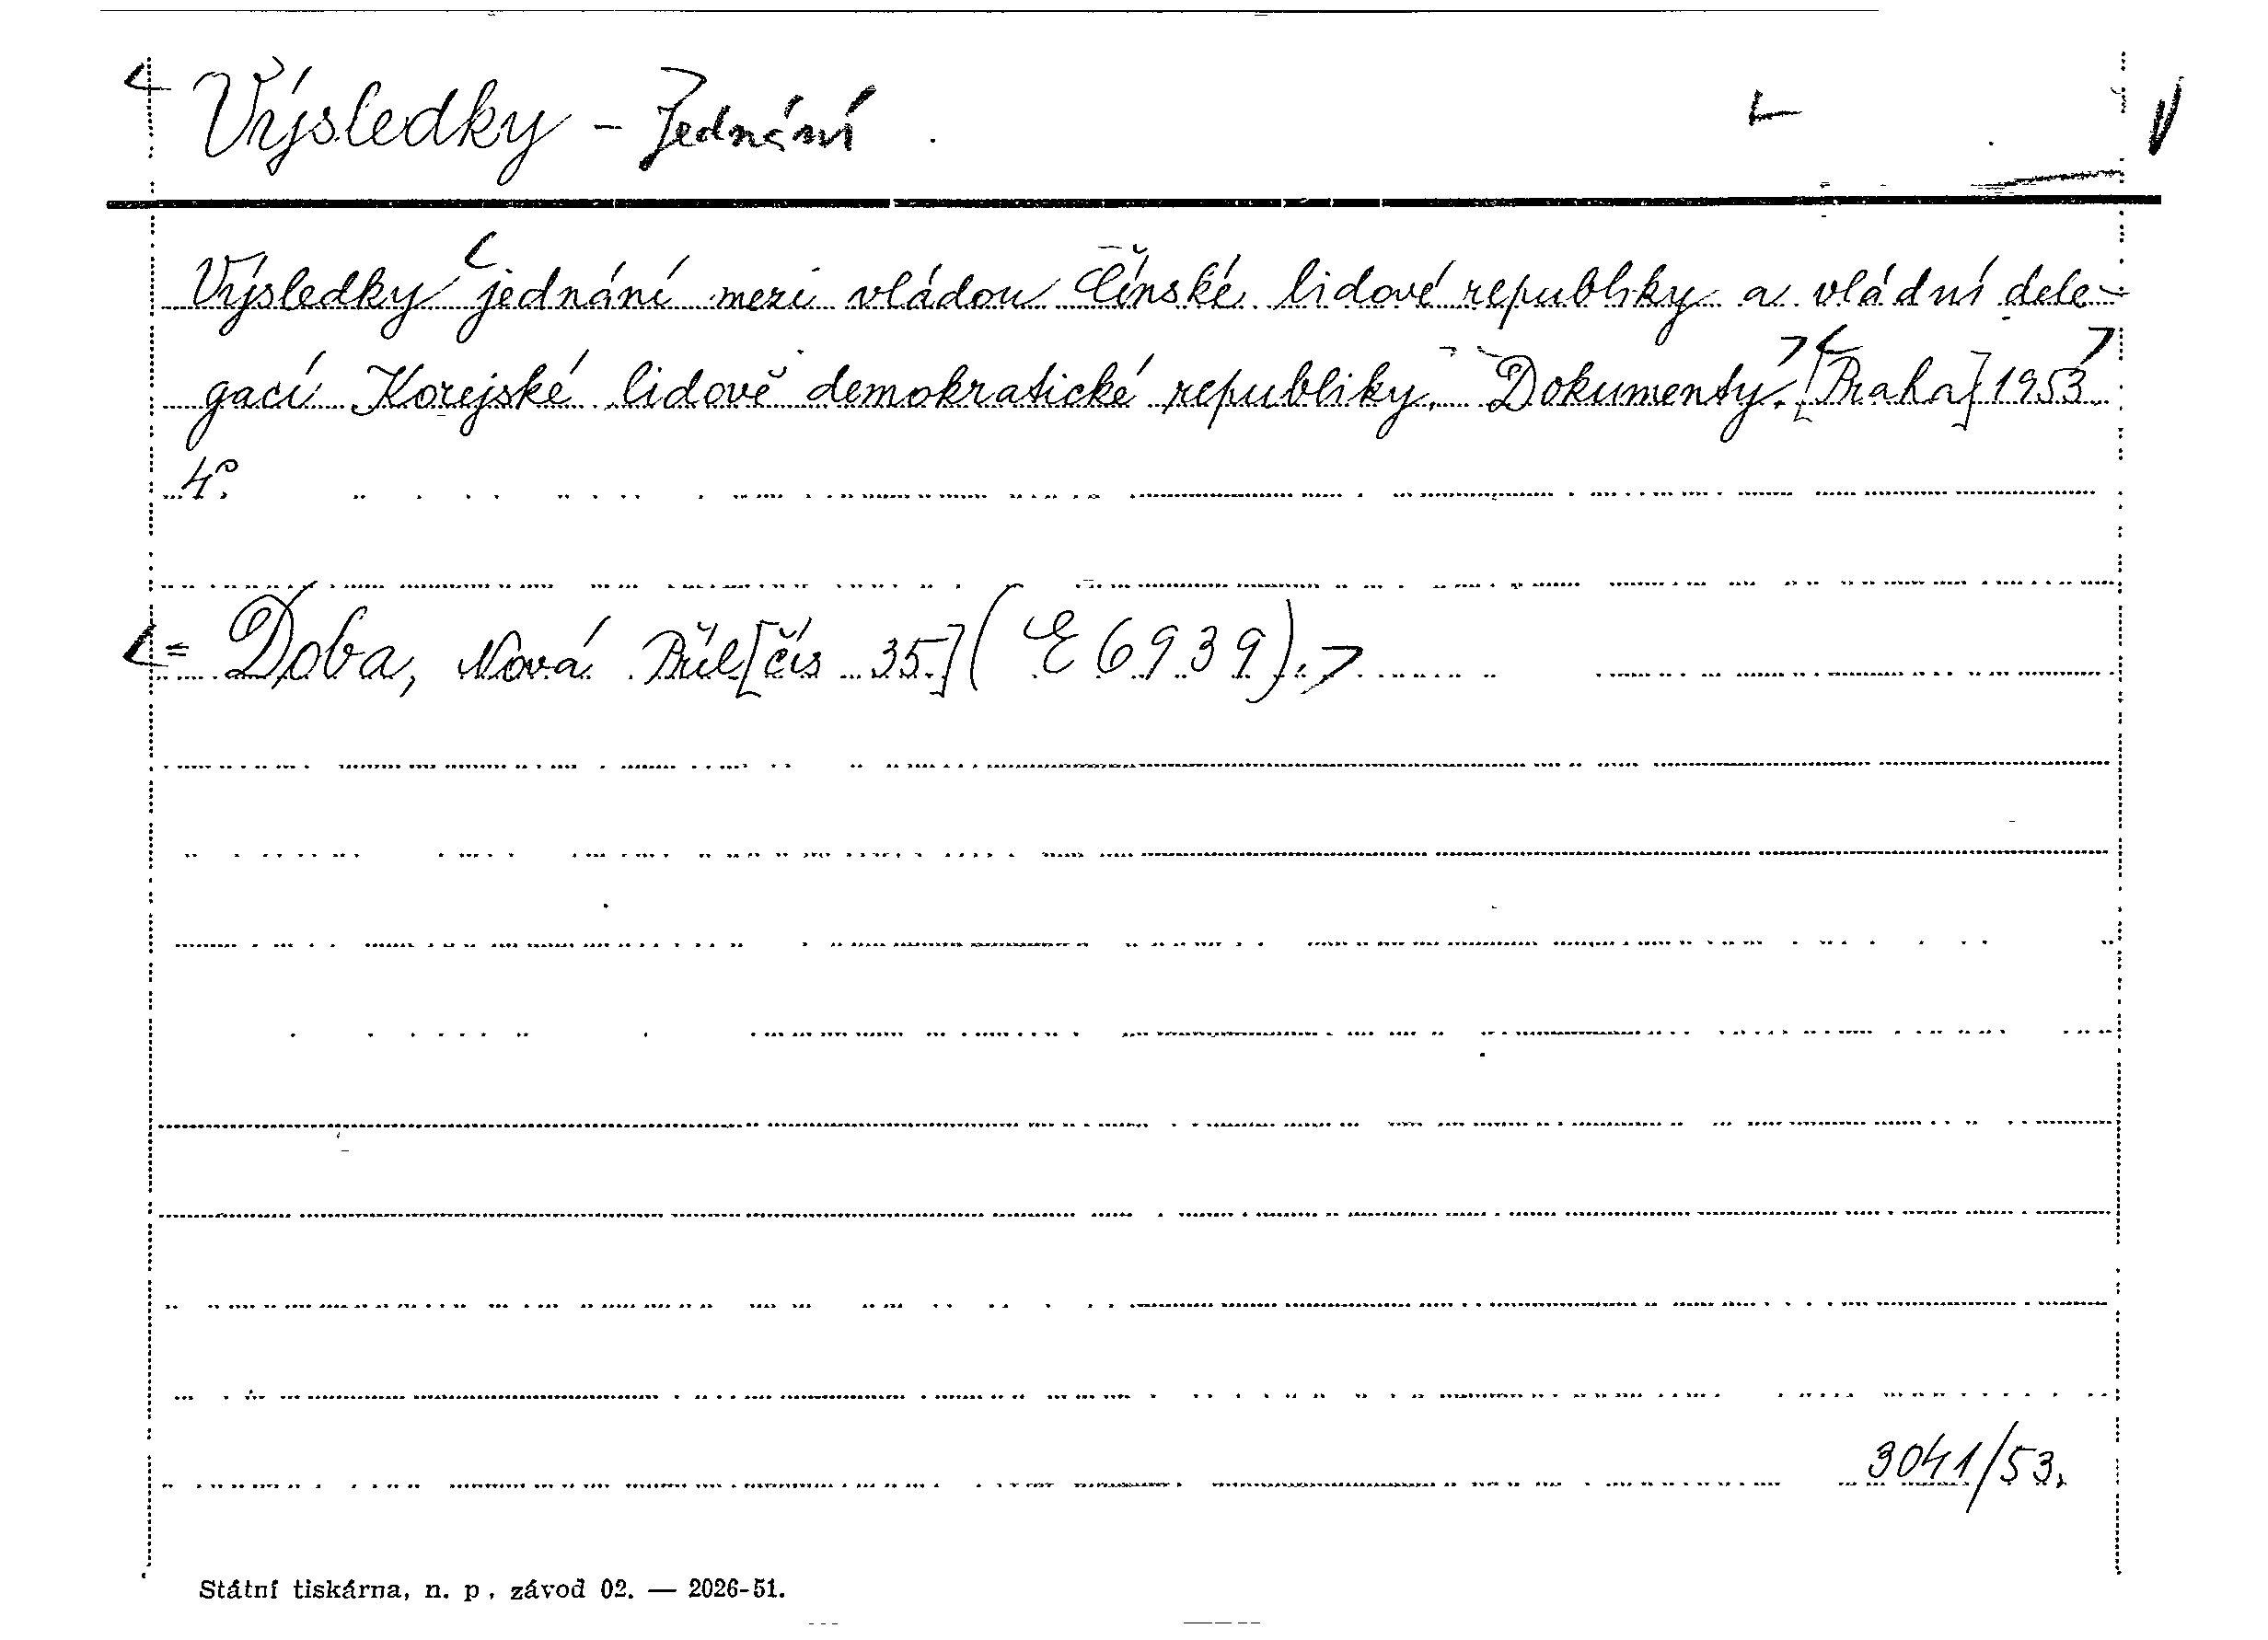 Výsledky - Jednání
Výsledky jednání mezi vládou Čínské lidové republiky a vládní dele-
gací Korejské lidově demokratické republiky. Dokumenty. [Praha] 1953.
4°.
= Doba, Nová Příl [čís 35.] (E 6939).
3041/53.
Státní tiskárna, n. p., závod 02. — 2026-51.